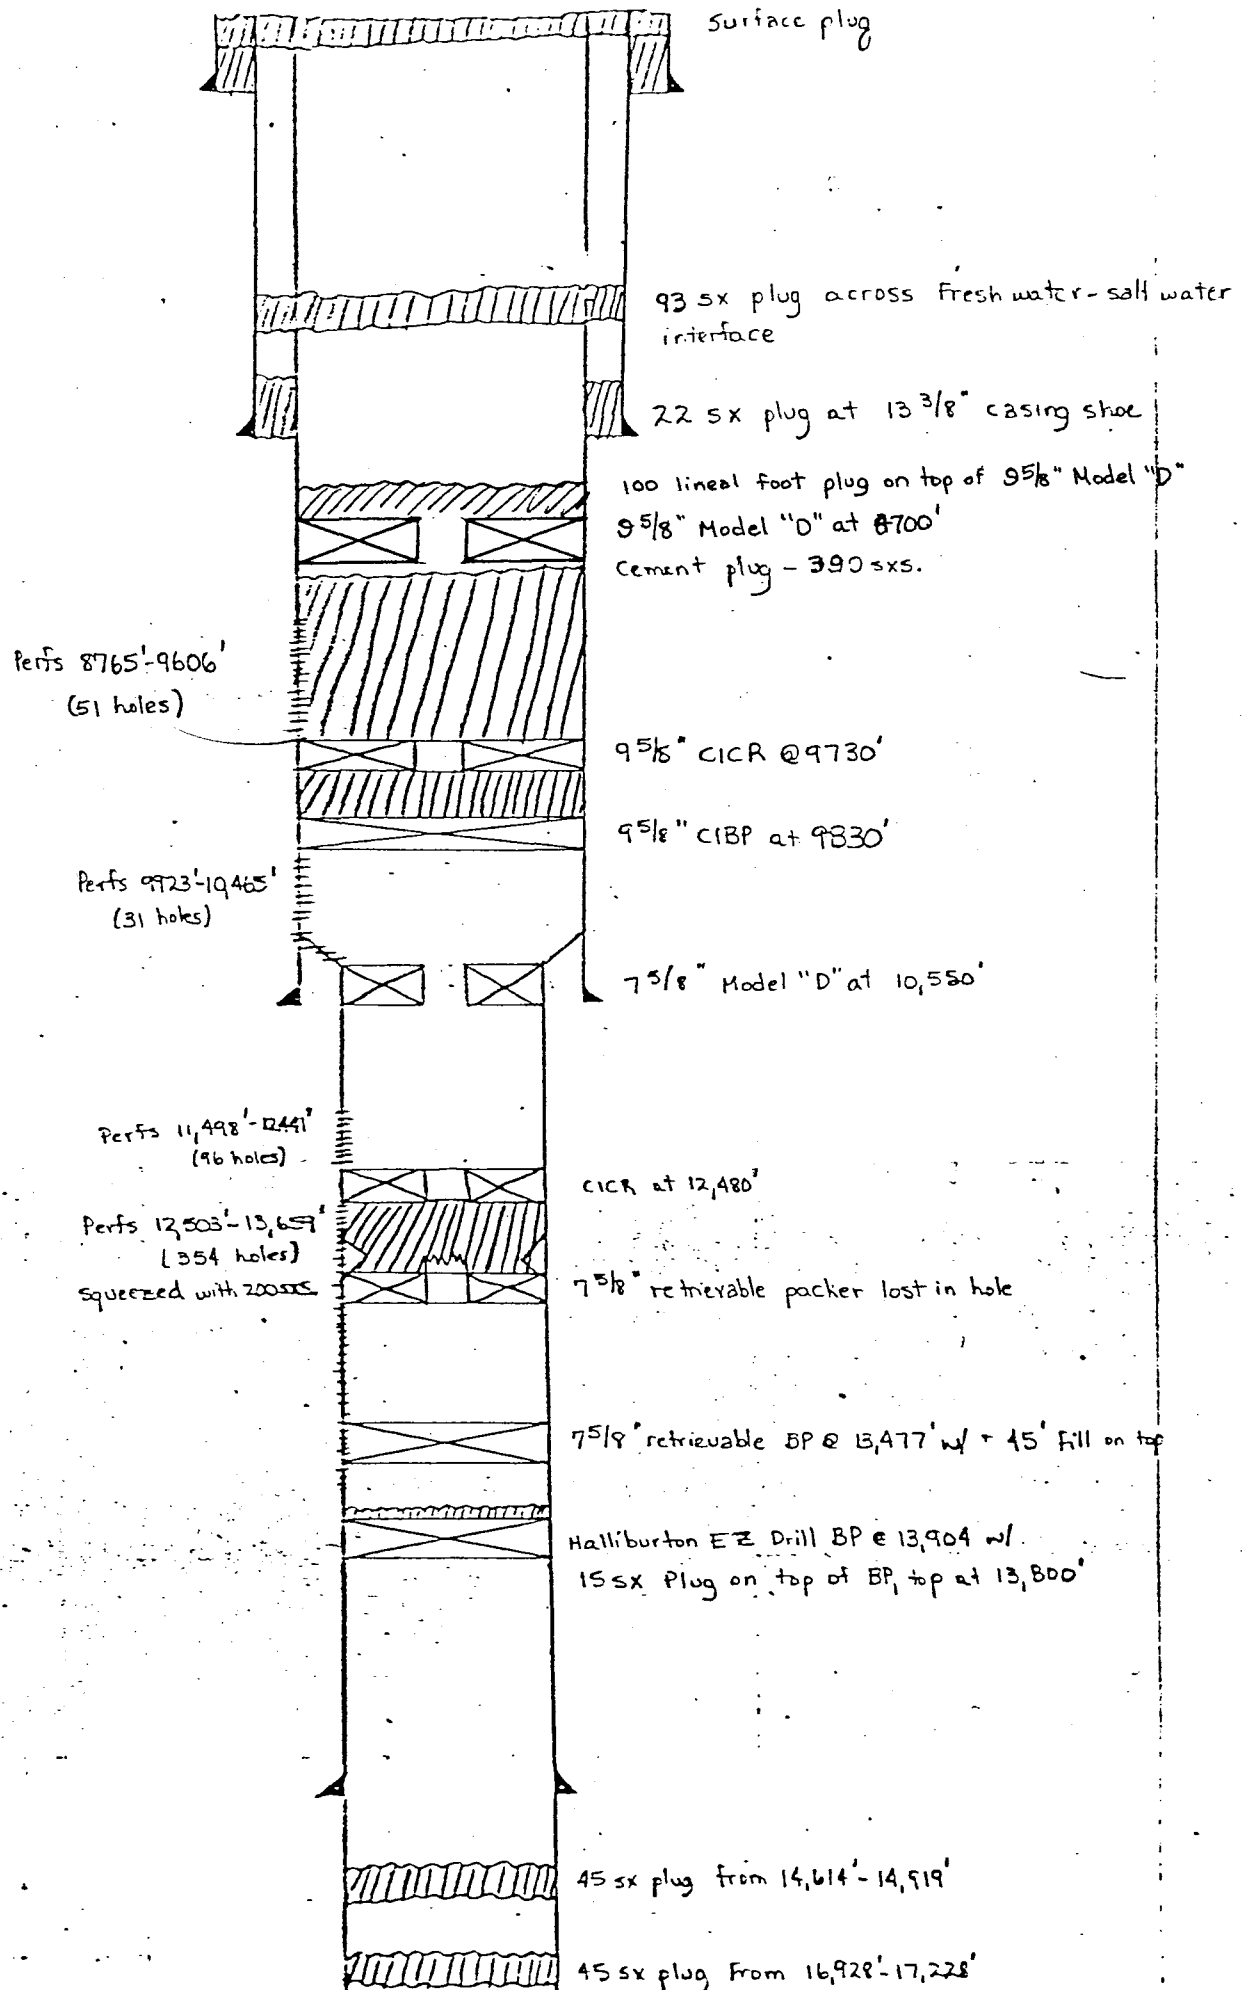 Surface plug
93 sx plug across Fresh water-salt water
interface
22 sx plug at 13 3/8" casing shoe
100 lineal foot plug on top of 9 5/8" Model "D"
9 5/8" Model "D" at 8700'
Cement plug - 390 sxs.
Perfs 8765'-9606'
(51 holes)
9 5/8" CICR @ 9730'
9 5/8" CIBP at 9830'
Perfs 9923'-10,465'
(31 holes)
7 5/8" Model "D" at 10,550'
Perfs 11,498'-12441'
(96 holes)
CICR at 12,480'
Perfs 12,503'-13,659'
(354 holes)
squeezed with 200sxs
7 5/8" retrievable packer lost in hole
7 5/8" retrievable BP @ 13,477' w/ + 45' fill on top
Halliburton EZ Drill BP @ 13,904 w/
15 sx Plug on top of BP, top at 13,800'
45 sx plug from 14,614'-14,919'
45 sx plug From 16,928'-17,228'